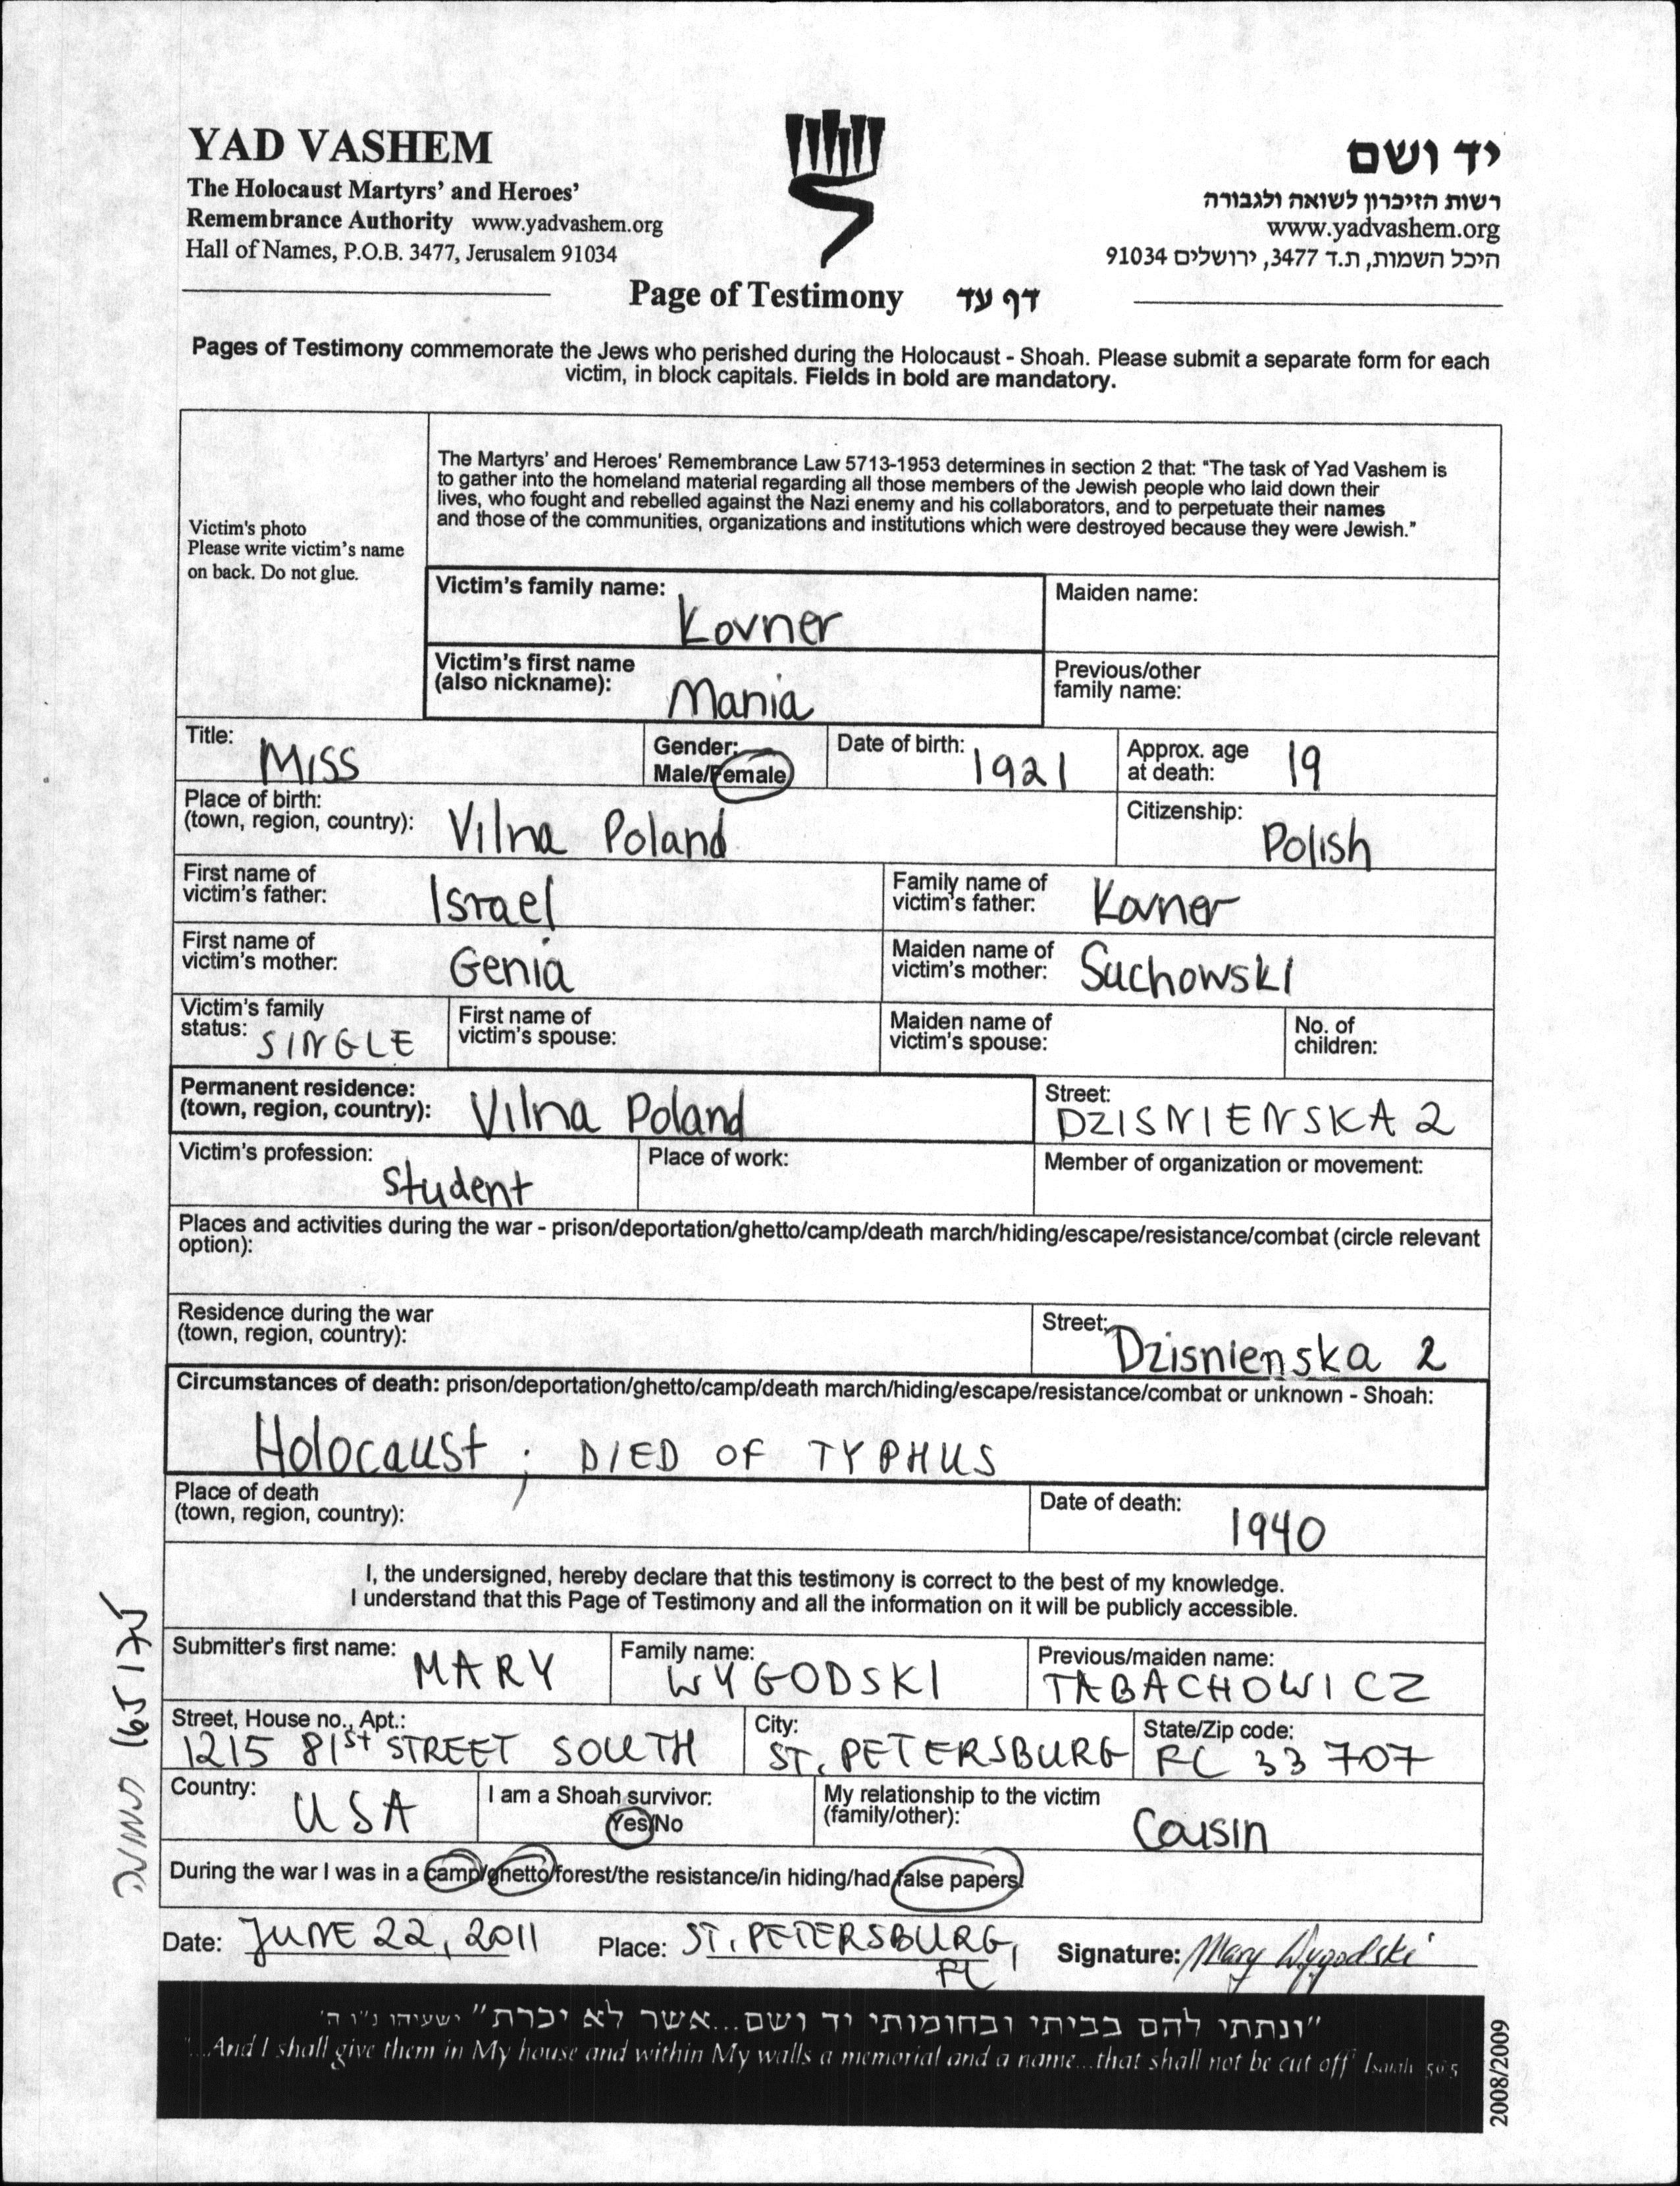 YAD VASHEM
The Holocaust Martyrs' and Heroes'
Remembrance Authority www.yadvashem.org
Hall of Names, P.O.B. 3477, Jerusalem 91034
יד ושם
רשות הזיכרון לשואה ולגבורה
www.yadvashem.org
היכל השמות, ת.ד 3477, ירושלים 91034
Page of Testimony דף עד
Pages of Testimony commemorate the Jews who perished during the Holocaust - Shoah. Please submit a separate form for each
victim, in block capitals. Fields in bold are mandatory.
Victim's photo
Please write victim's name
on back. Do not glue.
The Martyrs' and Heroes' Remembrance Law 5713-1953 determines in section 2 that: "The task of Yad Vashem is
to gather into the homeland material regarding all those members of the Jewish people who laid down their
lives, who fought and rebelled against the Nazi enemy and his collaborators, and to perpetuate their names
and those of the communities, organizations and institutions which were destroyed because they were Jewish."
Victim's family name: Kovner
Maiden name:
Victim's first name
(also nickname): Mania
Previous/other
family name:
Title: Miss
Gender:
Male/Female
Date of birth: 1921
Approx. age
at death: 19
Place of birth:
(town, region, country): Vilna Poland
Citizenship: Polish
First name of
victim's father: Israel
Family name of
victim's father: Kovner
First name of
victim's mother: Genia
Maiden name of
victim's mother: Suchowski
Victim's family
status: SINGLE
First name of
victim's spouse:
Maiden name of
victim's spouse:
No. of
children:
Permanent residence:
(town, region, country): Vilna Poland
Street:
DZISNIENSKA 2
Victim's profession: Student
Place of work:
Member of organization or movement:
Places and activities during the war - prison/deportation/ghetto/camp/death march/hiding/escape/resistance/combat (circle relevant
option):
Residence during the war
(town, region, country):
Street: Dzisnienska 2
Circumstances of death: prison/deportation/ghetto/camp/death march/hiding/escape/resistance/combat or unknown - Shoah:
Holocaust ; DIED OF TYPHUS
Place of death
(town, region, country):
Date of death: 1940
I, the undersigned, hereby declare that this testimony is correct to the best of my knowledge.
I understand that this Page of Testimony and all the information on it will be publicly accessible.
Submitter's first name: MARY
Family name: WYGODSKI
Previous/maiden name:
TABACHOWICZ
Street, House no., Apt.:
1215 81st STREET SOUTH
City:
ST. PETERSBURG
State/Zip code:
FL 33707
Country: USA
I am a Shoah survivor:
Yes/No
My relationship to the victim
(family/other): Cousin
During the war I was in a camp/ghetto/forest/the resistance/in hiding/had false papers.
Date: JUNE 22, 2011 Place: ST. PETERSBURG, FL Signature: Mary Wygodski
"ונתתי להם בביתי ובחומותי יד ושם...אשר לא יכרת" ישעיהו נ"ו ה'
"...And I shall give them in My house and within My walls a memorial and a name...that shall not be cut off" Isaiah 56:5
2008/2009